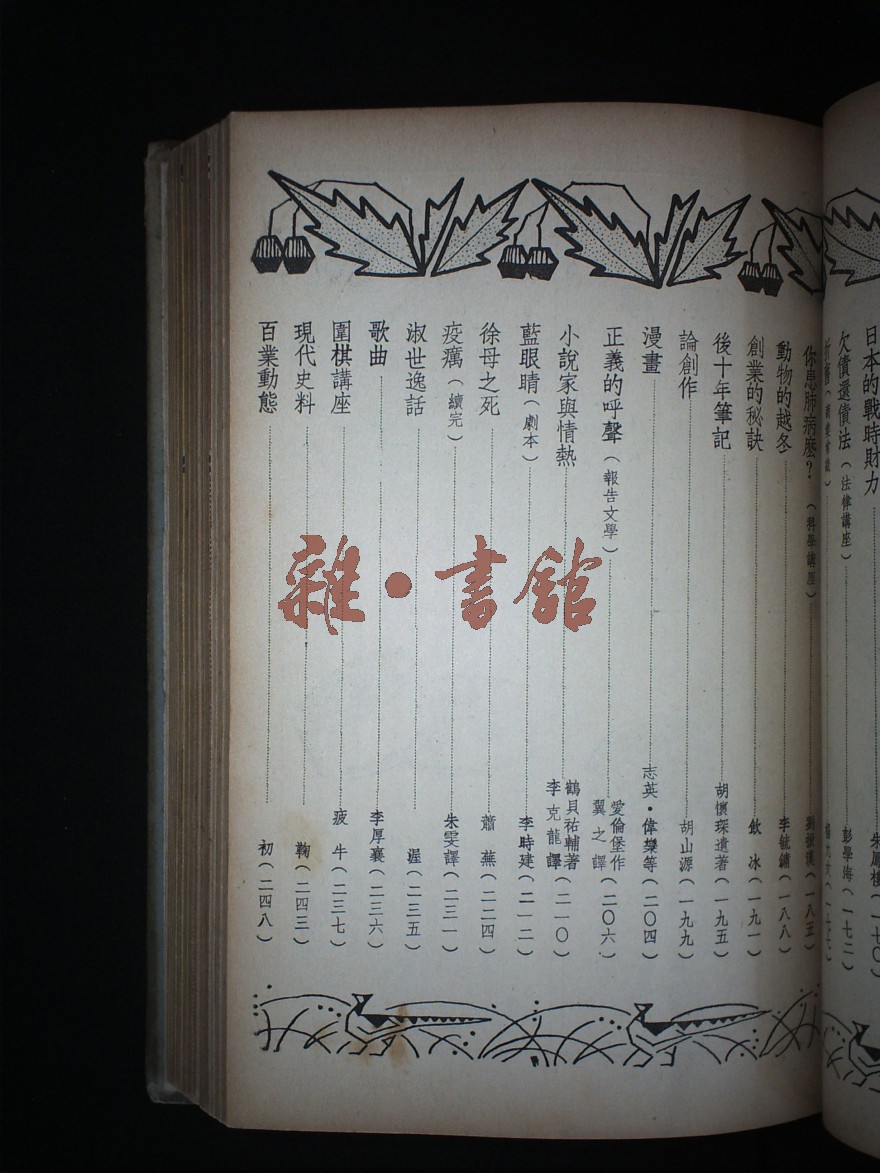 日本的戰時財力 朱鳳樓(一七〇)
欠債還債法(法律講座) 彭學海(一七二)
你患肺病麼?(科學講座) (一八五)
動物的越冬 李毓鏞(一八八)
創業的秘訣 飲冰(一九一)
後十年筆記 胡懷琛遺著(一九五)
論創作 胡山源(一九九)
漫畫 志英・偉樂等(二〇四)
正義的呼聲(報告文學) 愛倫堡作 翼之譯(二〇六)
小說家與情熱 鶴貝祐輔著 李克龍譯(二一〇)
藍眼睛(劇本) 李時建(二一二)
徐母之死 蕭蕪(二二四)
疫癘(續完) 朱雯譯(二三一)
淑世逸話 渥(二三五)
歌曲 李厚襄(二三六)
圍棋講座 疲牛(二三七)
現代史料 鞠(二四三)
百業動態 初(二四八)
雜・書館